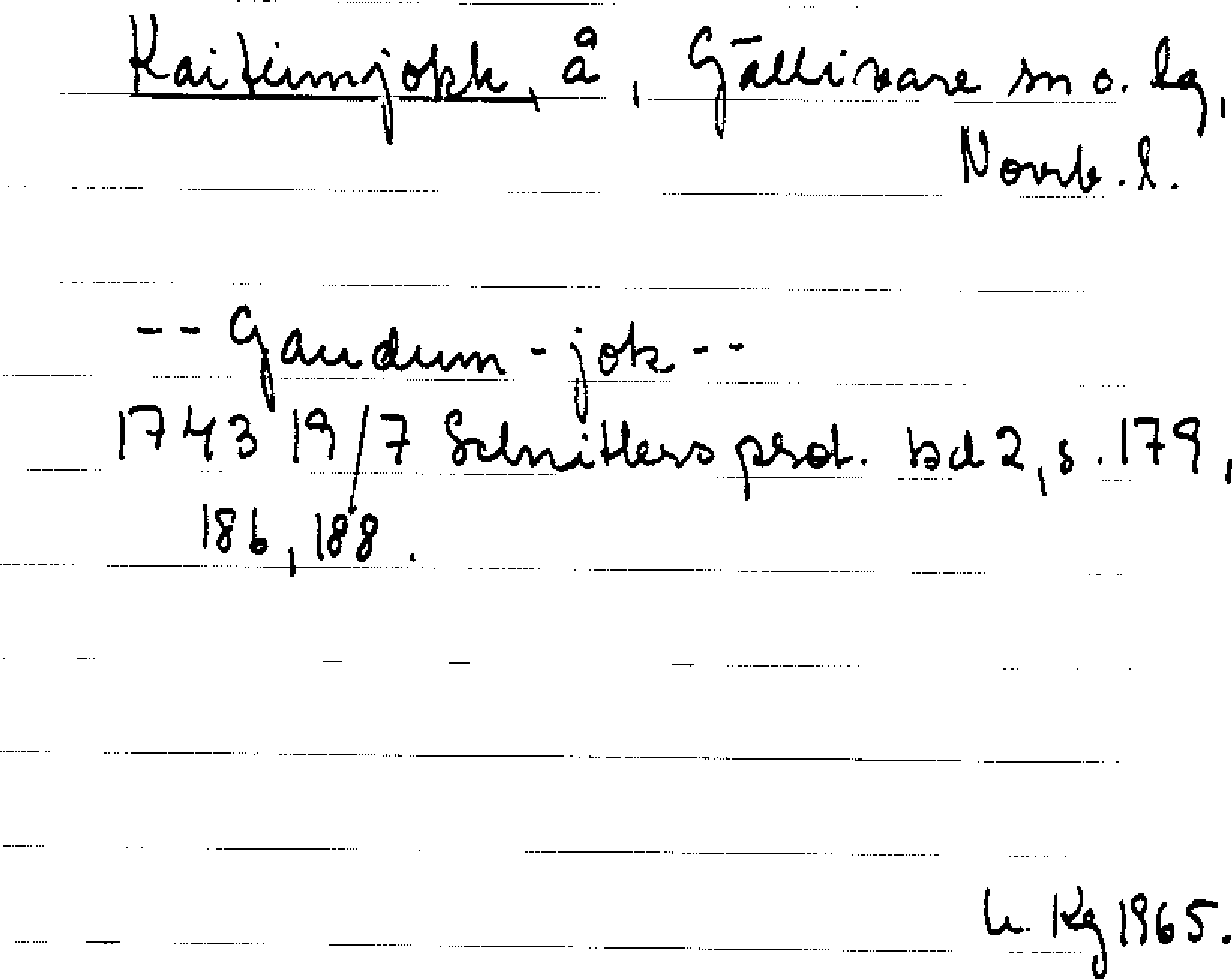 Kaitumjokk, å, Gällivare sn o. lg,
Norrb. l.
-- Gaudum-jok --
1743 19/7 Schnitlers prot. bd 2, s. 179,
186, 188.
Kg 1965.